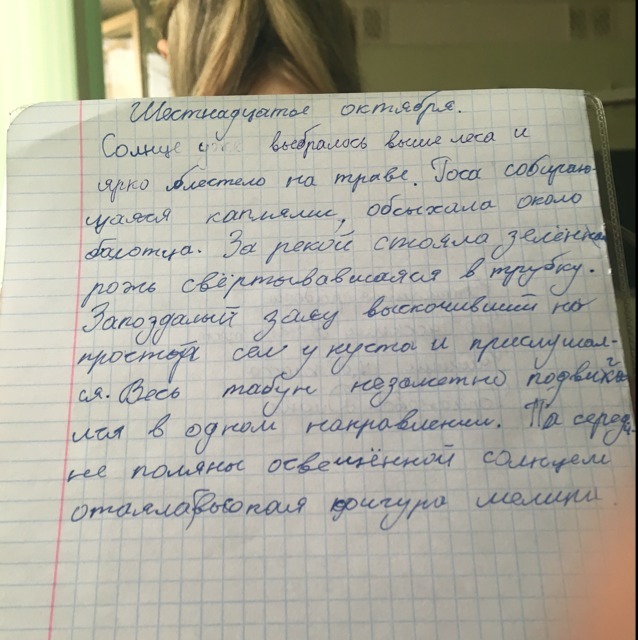 Шестнадцатое октября.
Солнце уже выбралось выше леса и
ярко блестело на траве. Роса собираю-
щаяся каплями, обсыхала около
балотца. За рекой стояла зелённая
рожь свёртывавшаяся в трубку.
Запоздалый заяц выскочивший на
простор сел у куста и прислушал-
ся. Весь табун незаметно подвигал-
ися в одном направлении. На середи-
не поляны освещённой солнцем
стаяла высокая фигура мелина.